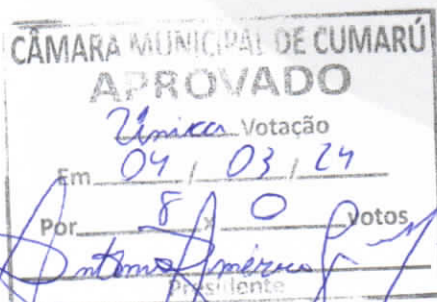 CÂMARA MUNICIPAL DE CUMARÚ
APROVADO
Única Votação
Em 04 / 03 / 24
Por 8 x 0 votos
Antonio Américo
Presidente